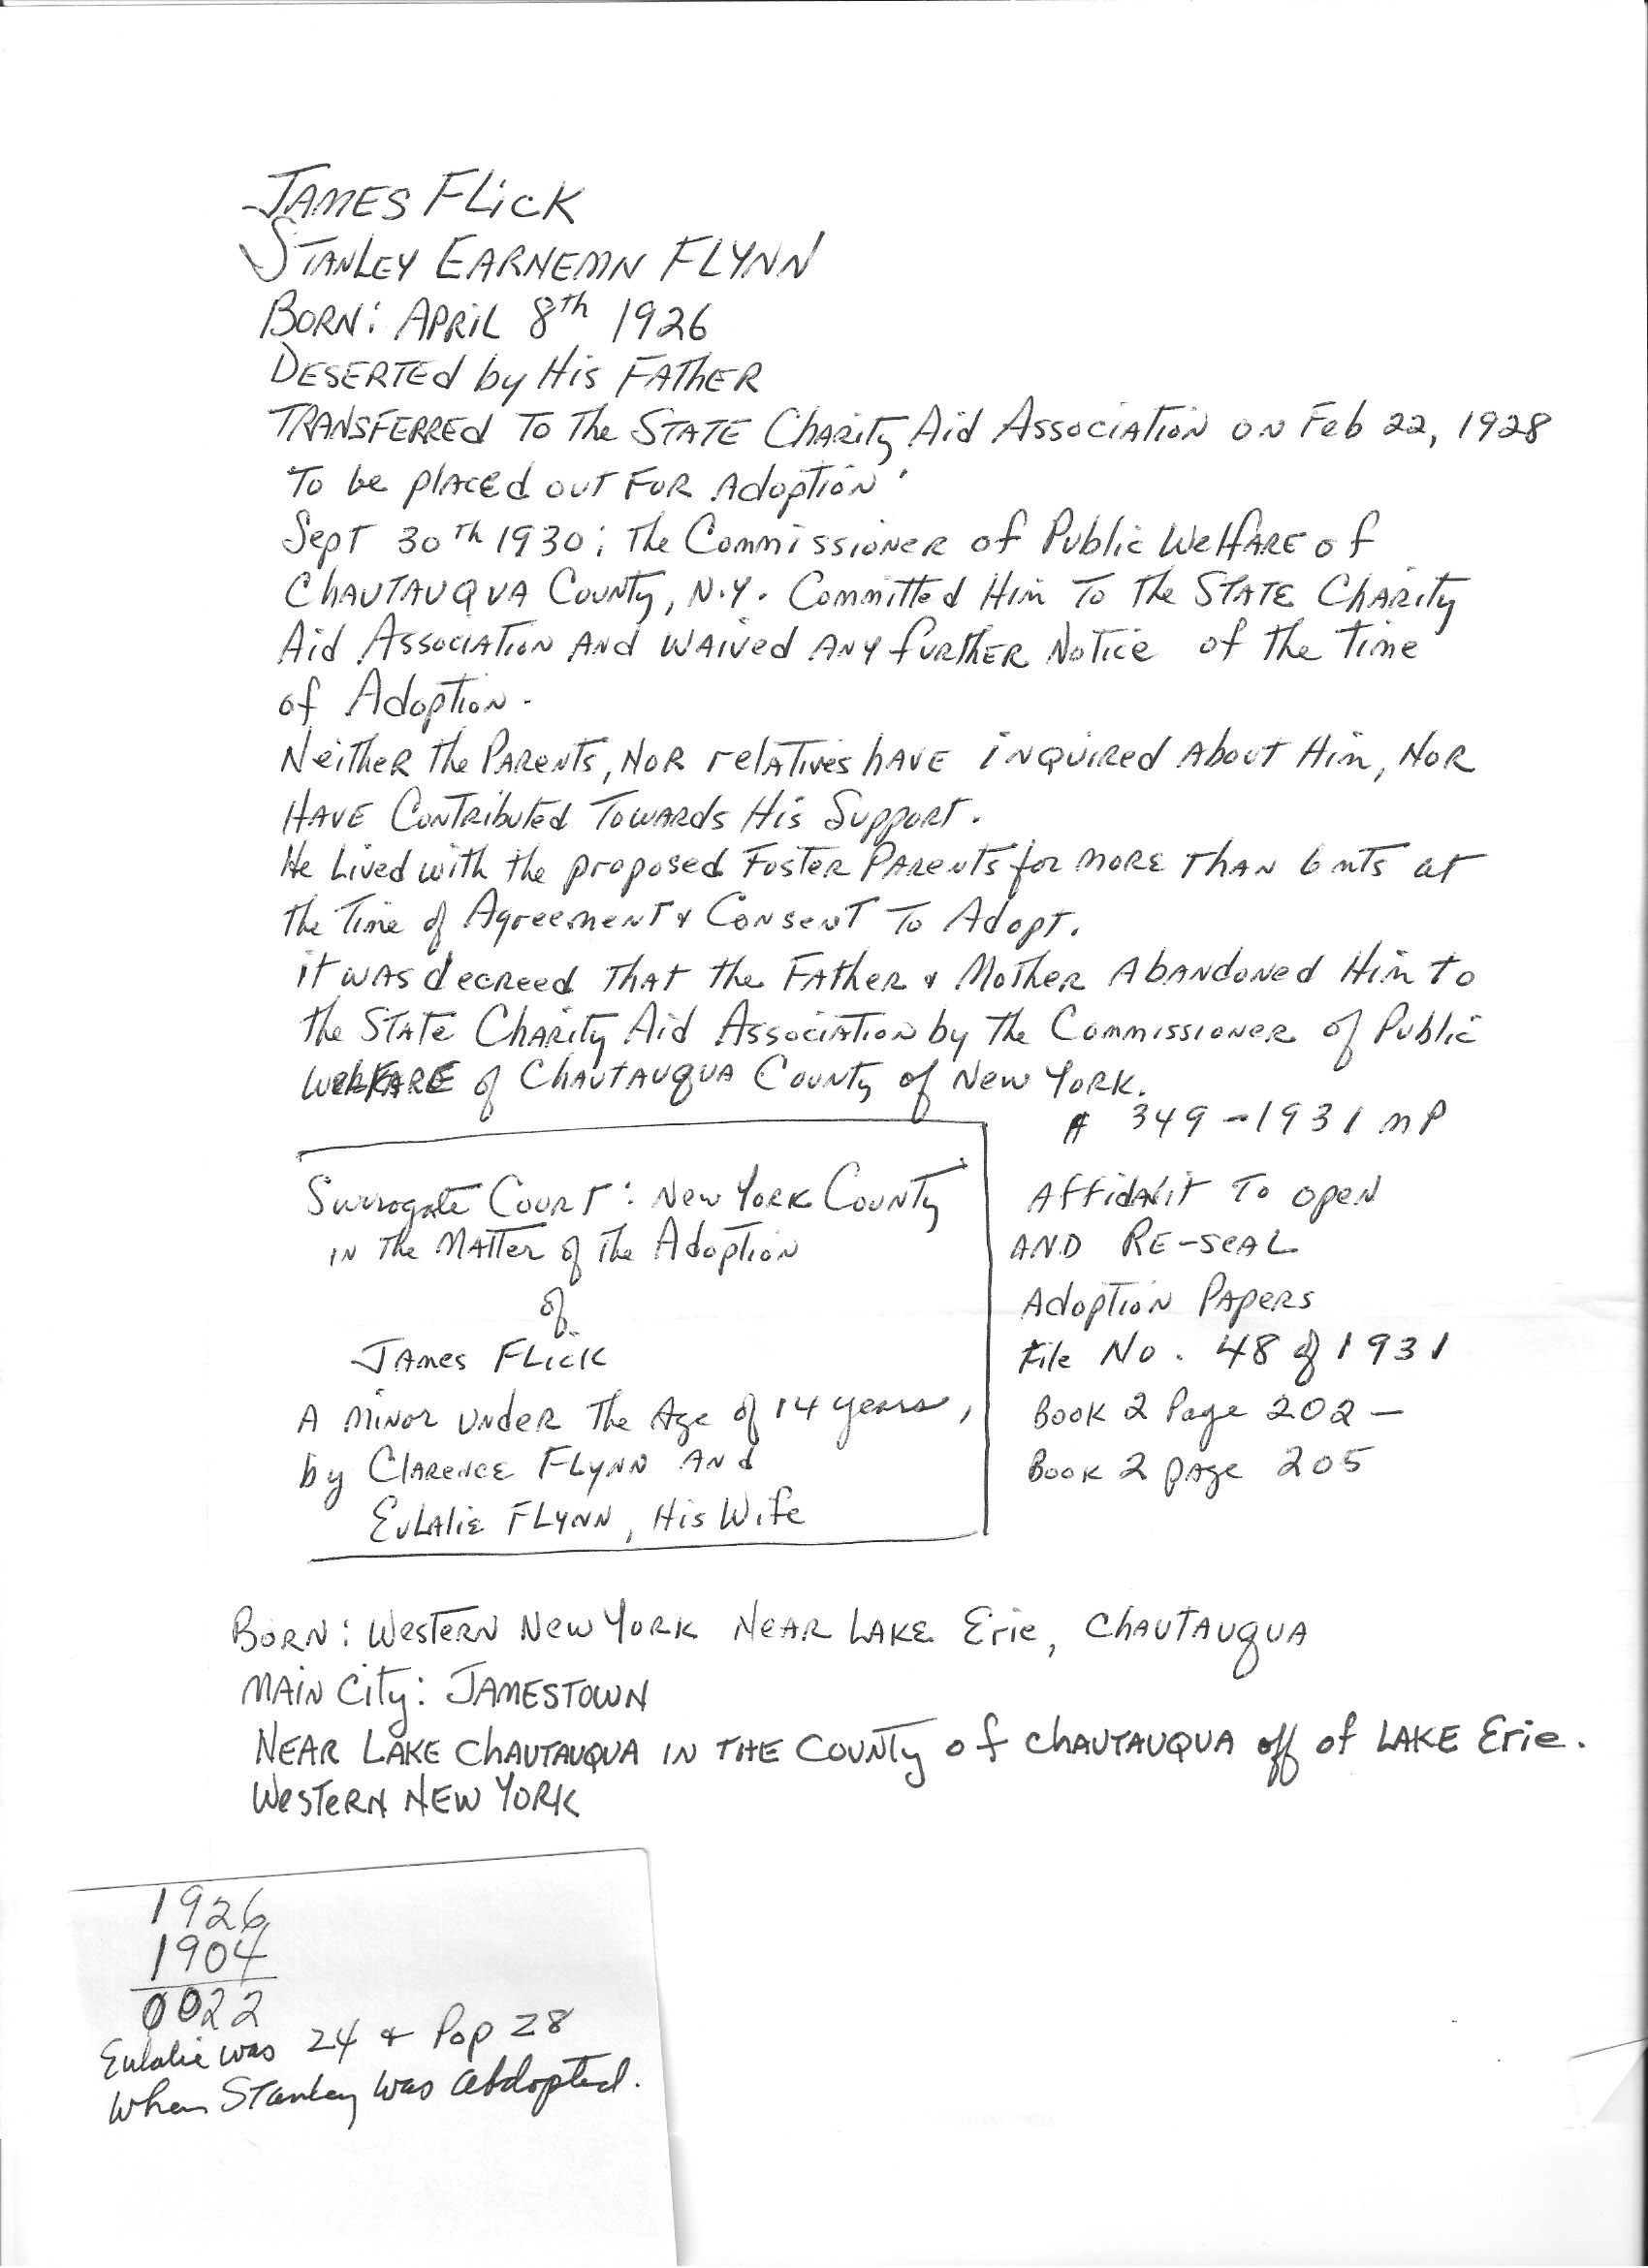 JAMES FLICK
STANLEY EARNEMN FLYNN
BORN: APRIL 8th 1926
DESERTED by His FATHER
TRANSFERRED TO The STATE Charity Aid Association on Feb 22, 1928
To be placed out FOR Adoption.
Sept 30th 1930; The Commissioner of Public Welfare of
CHAUTAUQUA County, N.Y. Committed Him To The STATE Charity
Aid Association And waived Any further Notice of the time
of Adoption.
Neither the Parents, Nor relatives have inquired About Him, Nor
Have Contributed Towards His Support.
He Lived with the proposed Foster Parents for more than 6 mts at
the Time of Agreement & Consent To Adopt.
it was decreed That the Father & Mother Abandoned Him to
the State Charity Aid Association by The Commissioner of Public
Welfare of Chautauqua County of New York.
# 349-1931 MP
Surrogate Court: New York County
in the Matter of the Adoption
of
James Flick
A minor under The Age of 14 years,
by Clarence Flynn And
Eulalie Flynn, His Wife
Affidavit To open
AND RE-SEAL
Adoption Papers
File No. 48 of 1931
Book 2 Page 202-
Book 2 page 205
Born: Western New York Near Lake Erie, Chautauqua
Main City: JAMESTOWN
NEAR LAKE CHAUTAUQUA IN THE COUNTy of CHAUTAUQUA off of LAKE Erie.
Western New York
1926
1904
0022
Eulalie was 24 & Pop 28
when Stanley was abdopted.